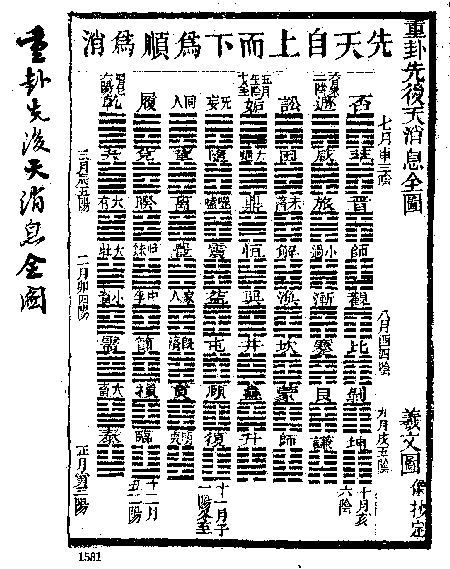 重卦先後天消息全圖
羲文圖
先天自上而下為順為消
七月申三陰
八月酉四陰
九月戌五陰
否 萃 晉 觀 比 剝 坤
十月亥六陰
遯 咸 旅 小過 漸 蹇 艮 謙
訟 困 未濟 解 渙 坎 蒙 師
姤 大過 鼎 恒 巽 井 蠱 升
无妄 隨 噬嗑 震 益 屯 頤 復
十一月子一陽冬至
同人 革 離 豐 家人 既濟 賁 明夷
履 兌 睽 歸妹 中孚 節 損 臨
十二月丑二陽
乾 夬 大有 大壯 小畜 需 大畜 泰
三月辰五陽
二月卯四陽
正月寅三陽
重卦先後天消息全圖
1581